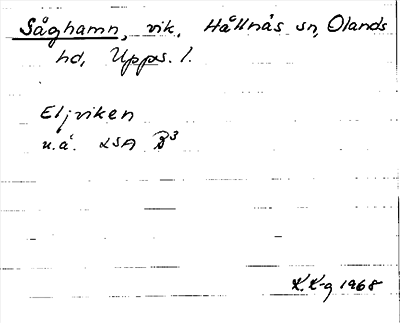 Såghamn, vik, Hållnäs sn, Olands
hd, Upps. l.
Eljviken
u.å. LSA B³
K.K-g 1968